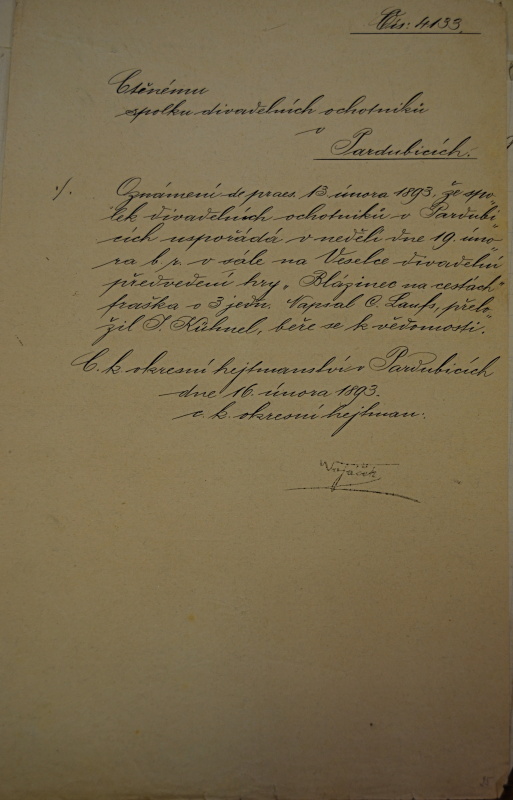 Čís: 4133.
Ctěnému
spolku divadelních ochotníků
v
Pardubicích.
./. Oznámení de praes. 13. února 1893, že spo„
lek divadelních ochotníků v Pardubi„
cích uspořádá v neděli dne 19. úno„
ra b. r. v sále na Veselce divadelní
předvedení hry „Blázinec na cestách"
fraška o 3 jedn. Napsal C. Laufs, přelo„
žil J. Kühnel, béře se k vědomosti.
C. k. okresní hejtmanství v Pardubicích
dne 16. února 1893.
c. k. okresní hejtman:
Vojáček
25